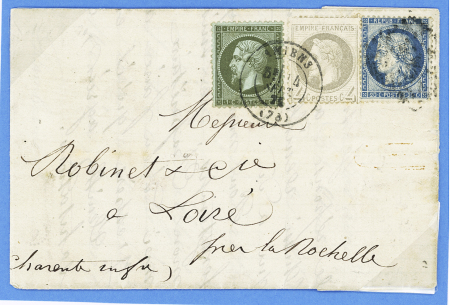 EMPIRE FRANC
EMPIRE FRANÇAIS
REPUB
AMIENS
POSTES
POSTES
(76)
Messieurs
Robinet & cie
a Loiré
près la Rochelle
Charente infre,